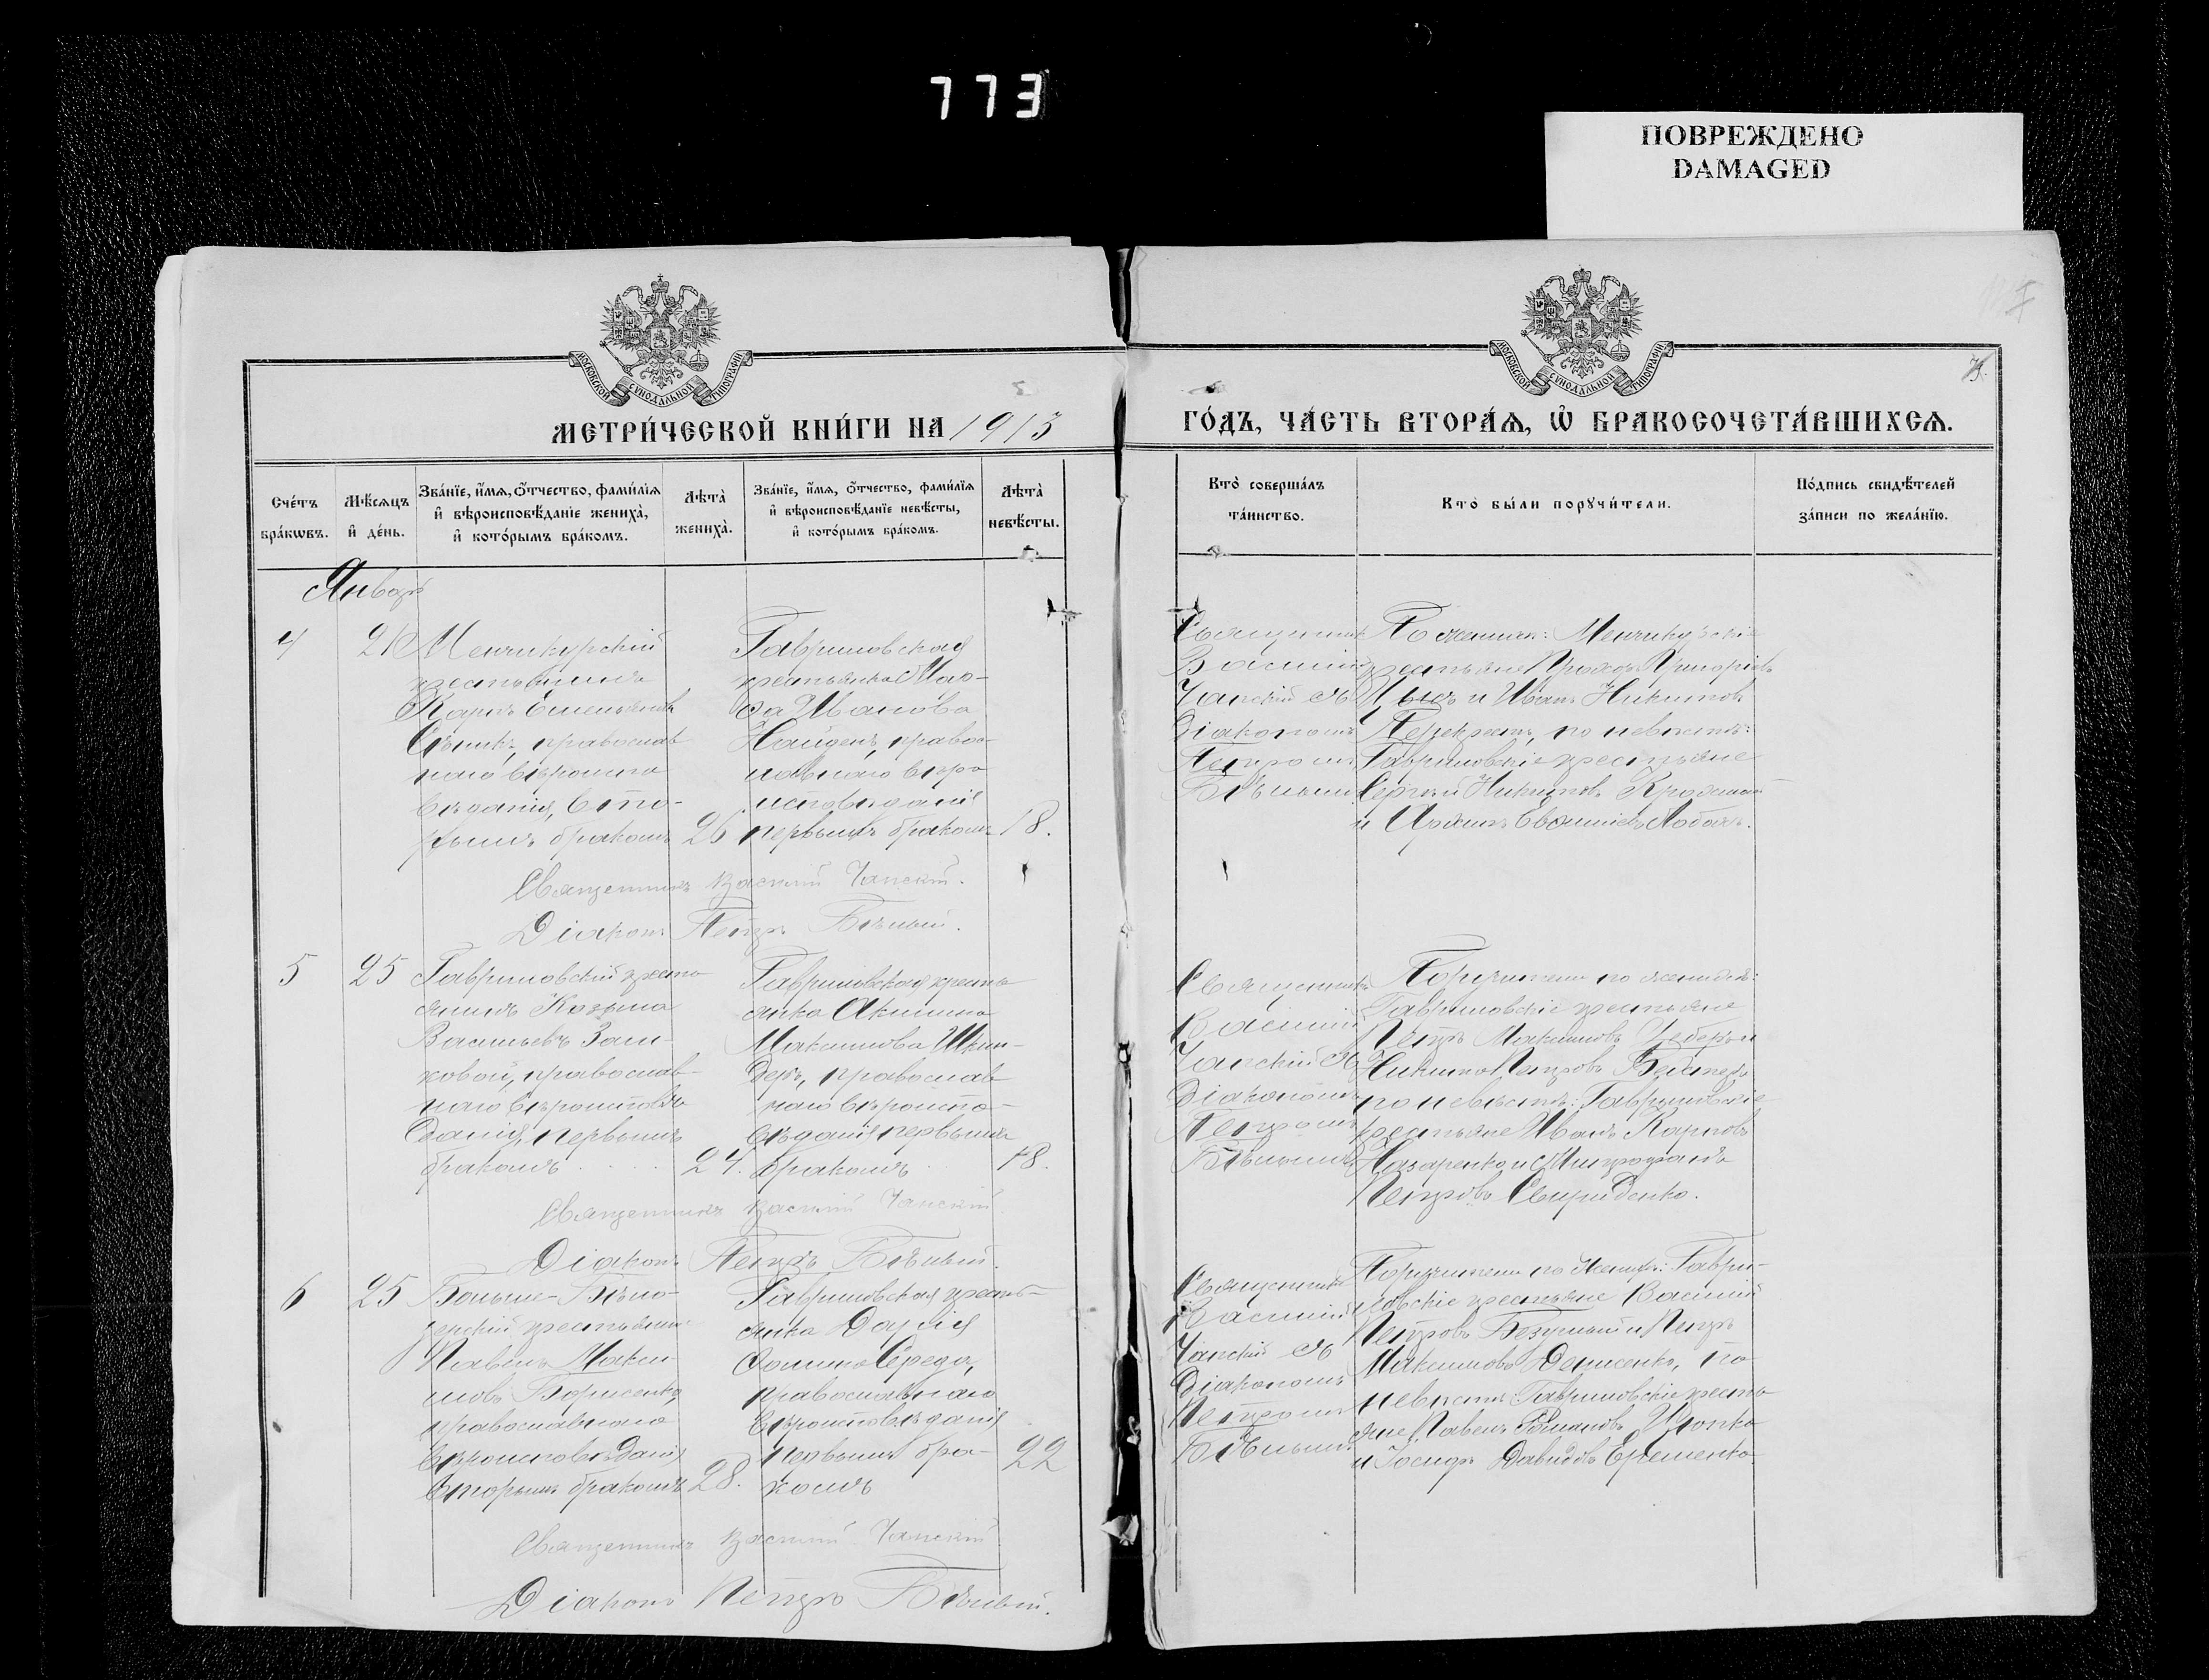 773
ПОВРЕЖДЕНО
DAMAGED
МОСКОВСКОЙ СѴНОДАЛЬНОЙ ТИПОГРАФИИ
МОСКОВСКОЙ СѴНОДАЛЬНОЙ ТИПОГРАФИИ
МЕТРИ́ЧЕСКОЙ КНИ́ГИ НА 1913
ГО́ДЪ, ЧА́СТЬ ВТОРА́Ѧ, Ѡ҆ БРАКОСОЧЕТА́ВШИХСѦ.
Сче́тъ бра́кѡвъ.
Мѣ́сѧцъ и҆ де́нь.
Зва́нїе, и҆́мѧ, ѻ҆́тчество, фами́лїѧ и҆ вѣроисповѣ́данїе жениха̀, и҆ кото́рымъ бра́комъ.
Лѣ́та̀ жениха̀.
Зва́нїе, и҆́мѧ, ѻ҆́тчество, фами́лїѧ и҆ вѣроисповѣ́данїе невѣ́сты, и҆ кото́рымъ бра́комъ.
Лѣ́та̀ невѣ́сты.
Кто̀ соверша́лъ та́инство.
Кто̀ бы́ли порꙋчи́тели.
По́дпись свидѣ́телей за́писи по жела́нїю.
Январь
4
21
Менчикурскій
крестьянинъ
Карпъ Емельяновъ
православ
наго вѣроиспо
вѣданія, вто-
рымъ бракомъ
26
Гавриловская
крестьянка
Иванова
Найденъ, правос-
лавнаго вѣро
исповѣданія
первымъ бракомъ
18.
Священникъ
Василій
Чапскій съ
Діакономъ
Петромъ
Бѣлымъ
По женихѣ: Менчикурскіе
крестьяне Григоріевъ
и Иванъ Никитовъ
Перекрестъ, по невѣстѣ:
Гавриловскіе крестьяне
Сергѣй
и
Священникъ Василій Чапскій.
Діаконъ Петръ Бѣлый.
5
25
Гавриловскій кресть
янинъ Козьма
Васильевъ
православ
наго вѣроисповѣ
данія, первымъ
бракомъ
24.
Гавриловская кресть
янка Акилина
Максимова Шкин-
деръ, православ
наго вѣроиспо-
вѣданія первымъ
бракомъ
18.
Священникъ
Василій
Чапскій съ
Діакономъ
Петромъ
Бѣлымъ
Поручители по женихѣ:
Гавриловскіе крестьяне
Петръ Максимовъ
Никита Петровъ
по невѣстѣ: Гавриловскіе
крестьяне Иванъ Карповъ
Назаренко и Митрофанъ
Петровъ Свириденко.
Священникъ Василій Чапскій
Діаконъ Петръ Бѣлый.
6
25
Больше-Бѣло-
зерскій крестьянинъ
Павелъ Макси-
мовъ Борисенко,
православнаго
вѣроисповѣданія
вторымъ бракомъ
28.
Гавриловская кресть-
янка Дарія
Фомина Середа,
православнаго
вѣроисповѣданія
первымъ бра-
комъ
22
Священникъ
Василій
Чапскій съ
Діакономъ
Петромъ
Бѣлымъ
Поручители по женихѣ: Гаври-
ловскіе крестьяне Василій
Петровъ и Петръ
Максимовъ Денисенко, по
невѣстѣ: Гавриловскіе кресть
яне Павелъ Романовъ
и Іосифъ Давидовъ Еременко
Священникъ Василій Чапскій
Діаконъ Петръ Бѣлый.